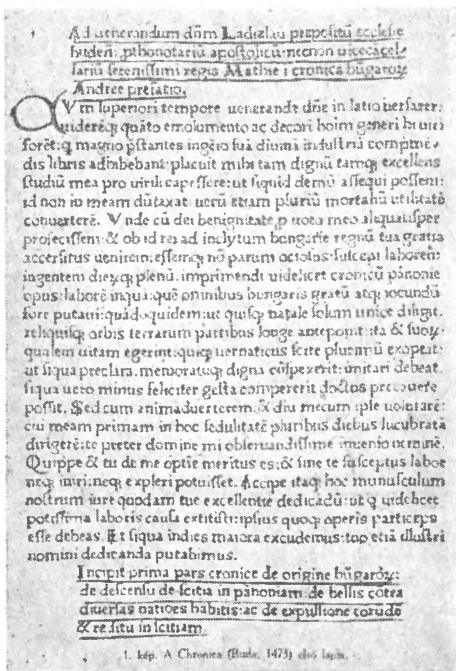 Ad uenerandum dn̄m Ladislaū prepositū ecclesie
budeñ: ꝓthonotariū apostolicū: necnon uicecācel⸗
lariū serenissimi regis Mathie: i cronica hūgaroꝝ
Andree prefatio.
QVm superiori tempore uenerande dn̄e in latio uersarer:
uideremq; quāto emolumento ac decori hoīm generi hi uiri
forēt: q magno p̄stantes ingēio suā diuinā industriā comprimē⸗
dis libris adhibebant: placuit mihi tam dignū tamq; excellens
studiū mea pro uirili capessere: ut siquid demū assequi possem:
id non in meam dūtaxat: uerū etiam pluriū mortaliū utilitatē
conuerterē. Vnde cū dei benignitate ꝓ uoto meo aliqualisper
proiecissem: & ob id rei ad inclytum hungarie regnū tua gratia
accersitus uenirem: essemq; nō parum ociosus: suscepi laborem
ingentem dieꝝq; plenū. imprimendi uidelicet cronicū pānonie
opus: laborē inquā: quē omnibus hungaris gratū atq; iocundū
fore putaui: quādoquidem: ut quisq; natale solum unice diligit.
reliquisq; orbis terrarum partibus longe anteponit: ita & suoꝝ
qualem uitam egerint: quisq; uernaticus scire plurimū exoptat:
ut siqua preclara. memoratuq; digna cōspexerit: imitari debeat.
siqua uero minus feliciter gesta compererit doctus precauere
possit. Sed cum animaduerterem: & diu mecum ipse uolutarē:
cui meam primam in hoc sedulitatē pluribus diebus lucubratā
dirigerē: te preter domine mi obseruandissime inuenio neminē.
Quippe & tu de me optīe meritus es: & sine te susceptus labor
neq; iniri: neq; expleri potuisset. Accipe itaq; hoc munusculum
nostrum iure quodam tue excellentie dedicādū: ut q uidelicet
potissima laboris causa extitisti: ipsius quoq; operis particeps
esse debeas. Et siqua indies maiora excudemus: tuo etiā illustri
nomini dedicanda putabimus.
Incipit prima pars cronice de origine hūgaroꝝ:
de descensu de scitia in pānoniam: de bellis cōtra
diuersas natiōes habitis: ac de expulsione eorūdē
& reditu in scitiam.
1. kép. A Chronica (Buda, 1473) első lapja.